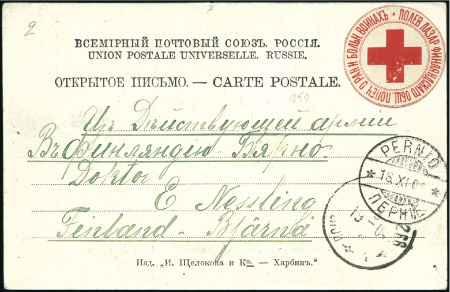 2
ВСЕМІРНЫЙ ПОЧТОВЫЙ СОЮЗЪ. РОССІЯ.
UNION POSTALE UNIVERSELLE. RUSSIE.
ОТКРЫТОЕ ПИСЬМО. — CARTE POSTALE.
ПОЛЕВ. ЛАЗАР. ФИНЛЯНДСКАГО ОБЩ. ПОПЕЧ. О РАН. И БОЛЬН. ВОИНАХЪ
1259
Изъ Дѣйствующей арміи
Въ Финляндію Бярно
Doktor
E Nessling
Finland - Bjärnå
PERNIÖ
18.XI.0
ПЕРНІЕ
Изд. „И. Щелокова и Ко. — Харбинъ."